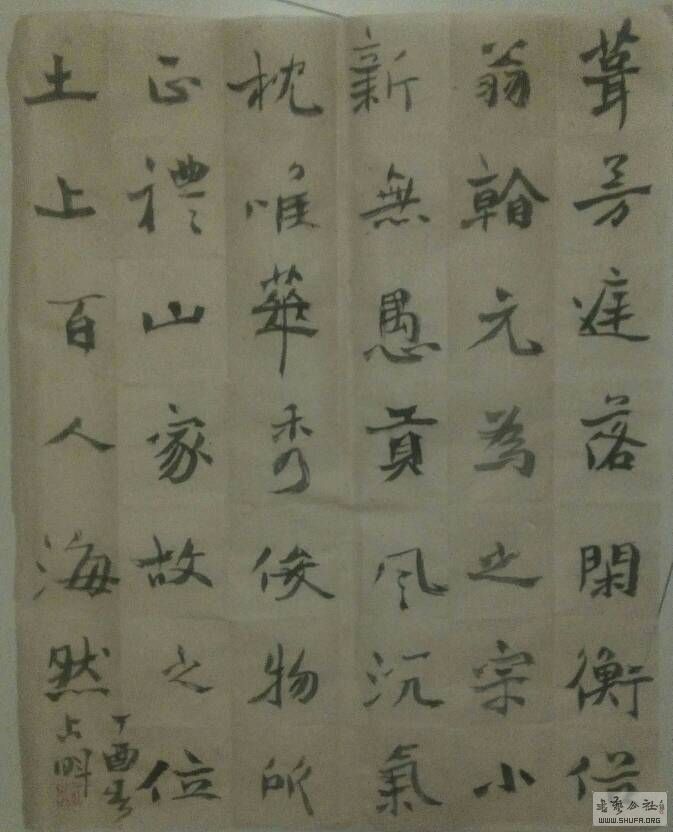 葺芳莛落閑衡俗
翁翰元為之宗小
新無愚貢風沉氣
枕唯華秀俊物所
正禮山家故之位
土上百人海然
丁酉
占明
WWW.SHUFA.ORG